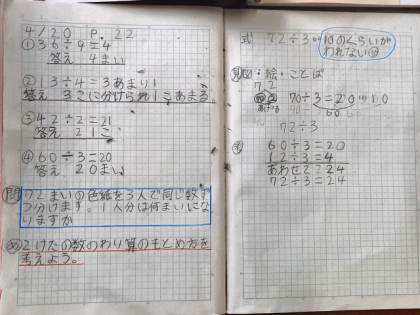 4/20 P.22
①36÷9=4
答え 4まい
②13÷4=3あまり1
答え 3こに分けられ1こあまる。
③42÷2=21
答え 21こ
④60÷3=20
答え 20まい
問 72まいの色紙を3人で同じ数ず
つ分けます。1人分は何まいにな
りますか
め 2けたの数のわり算のもとめ方を
考えよう。
式 72÷3 10のくらいが
われない
図・絵・ことば
72
70÷3=20
60
72÷3
60÷3=20
12÷3=4
あわせて24
72÷3=24